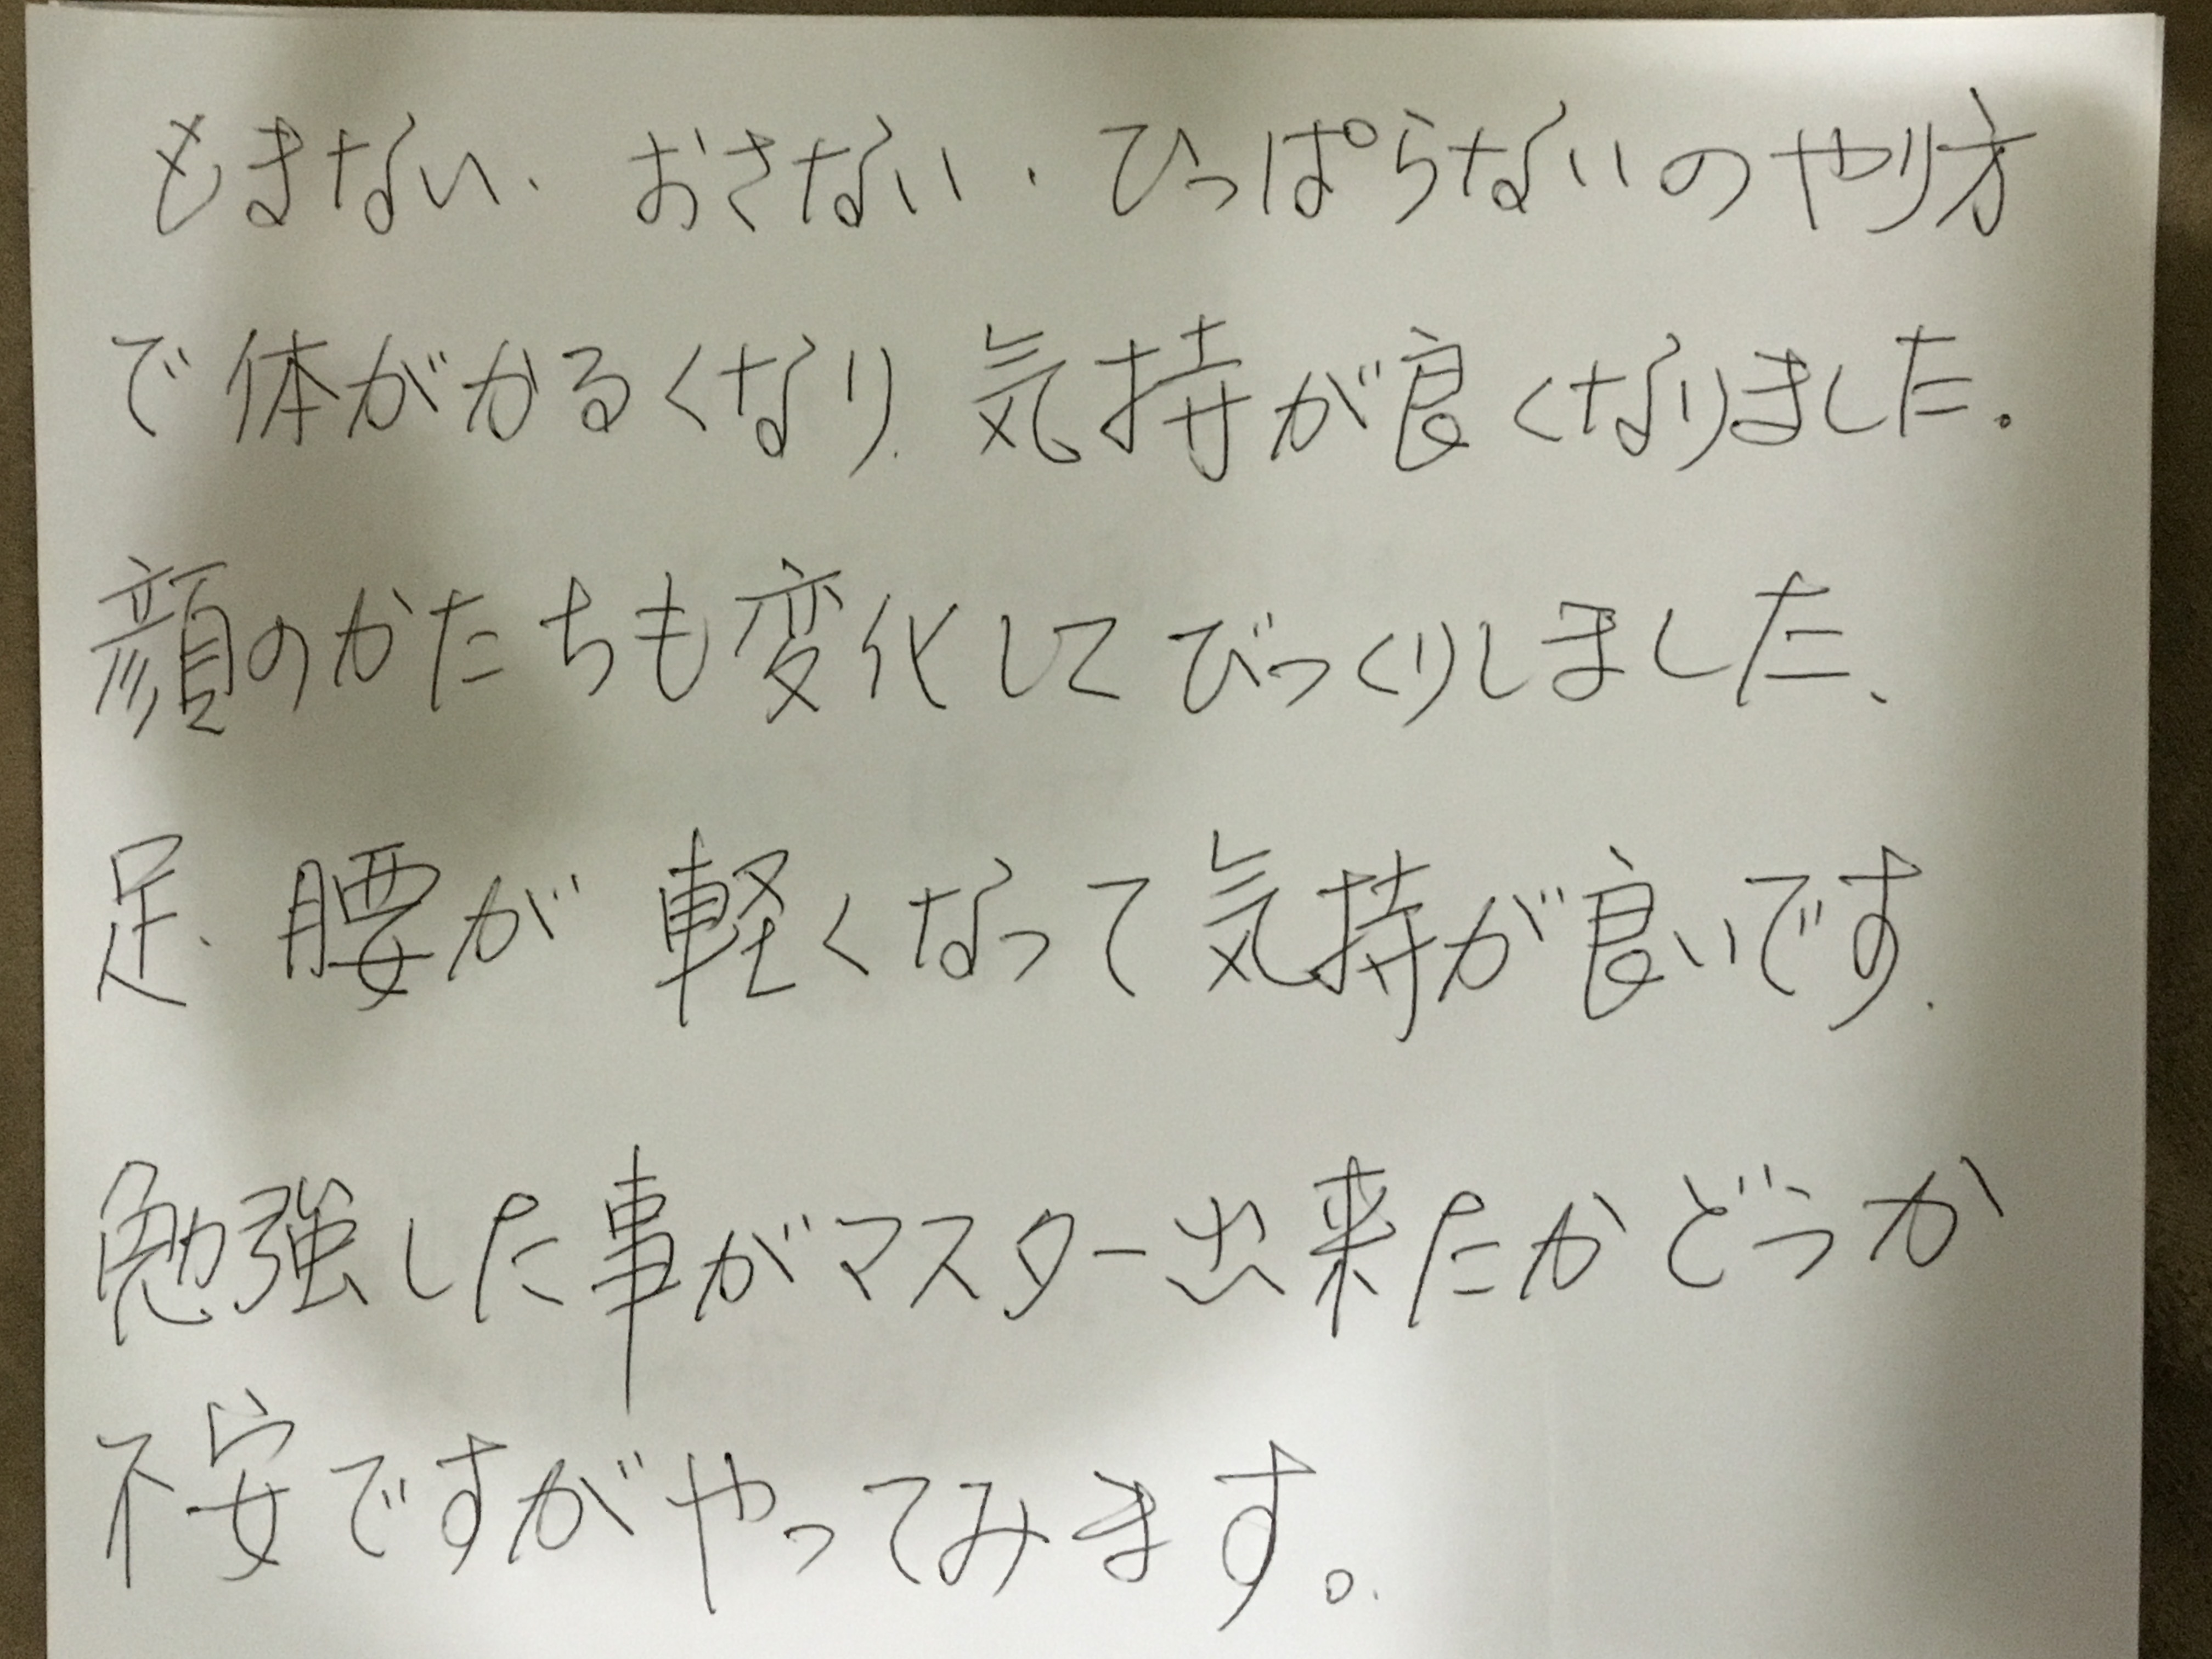 もまない、おさない、ひっぱらないのやり方
で体がかるくなり、気持が良くなりました。
顔のかたちも変化してびっくりしました、
足、腰が軽くなって気持が良いです.
勉強した事がマスター出来たかどうか
不安ですがやってみます。